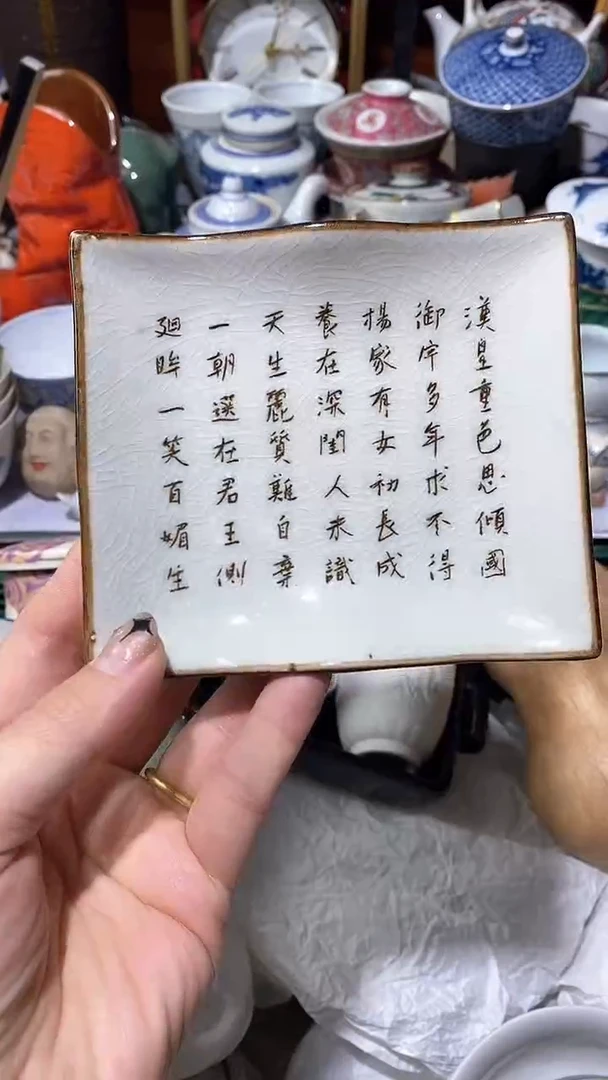 漢皇重色思傾國
御宇多年求不得
楊家有女初長成
養在深閨人未識
天生麗質難自棄
一朝選在君王側
廻眸一笑百媚生